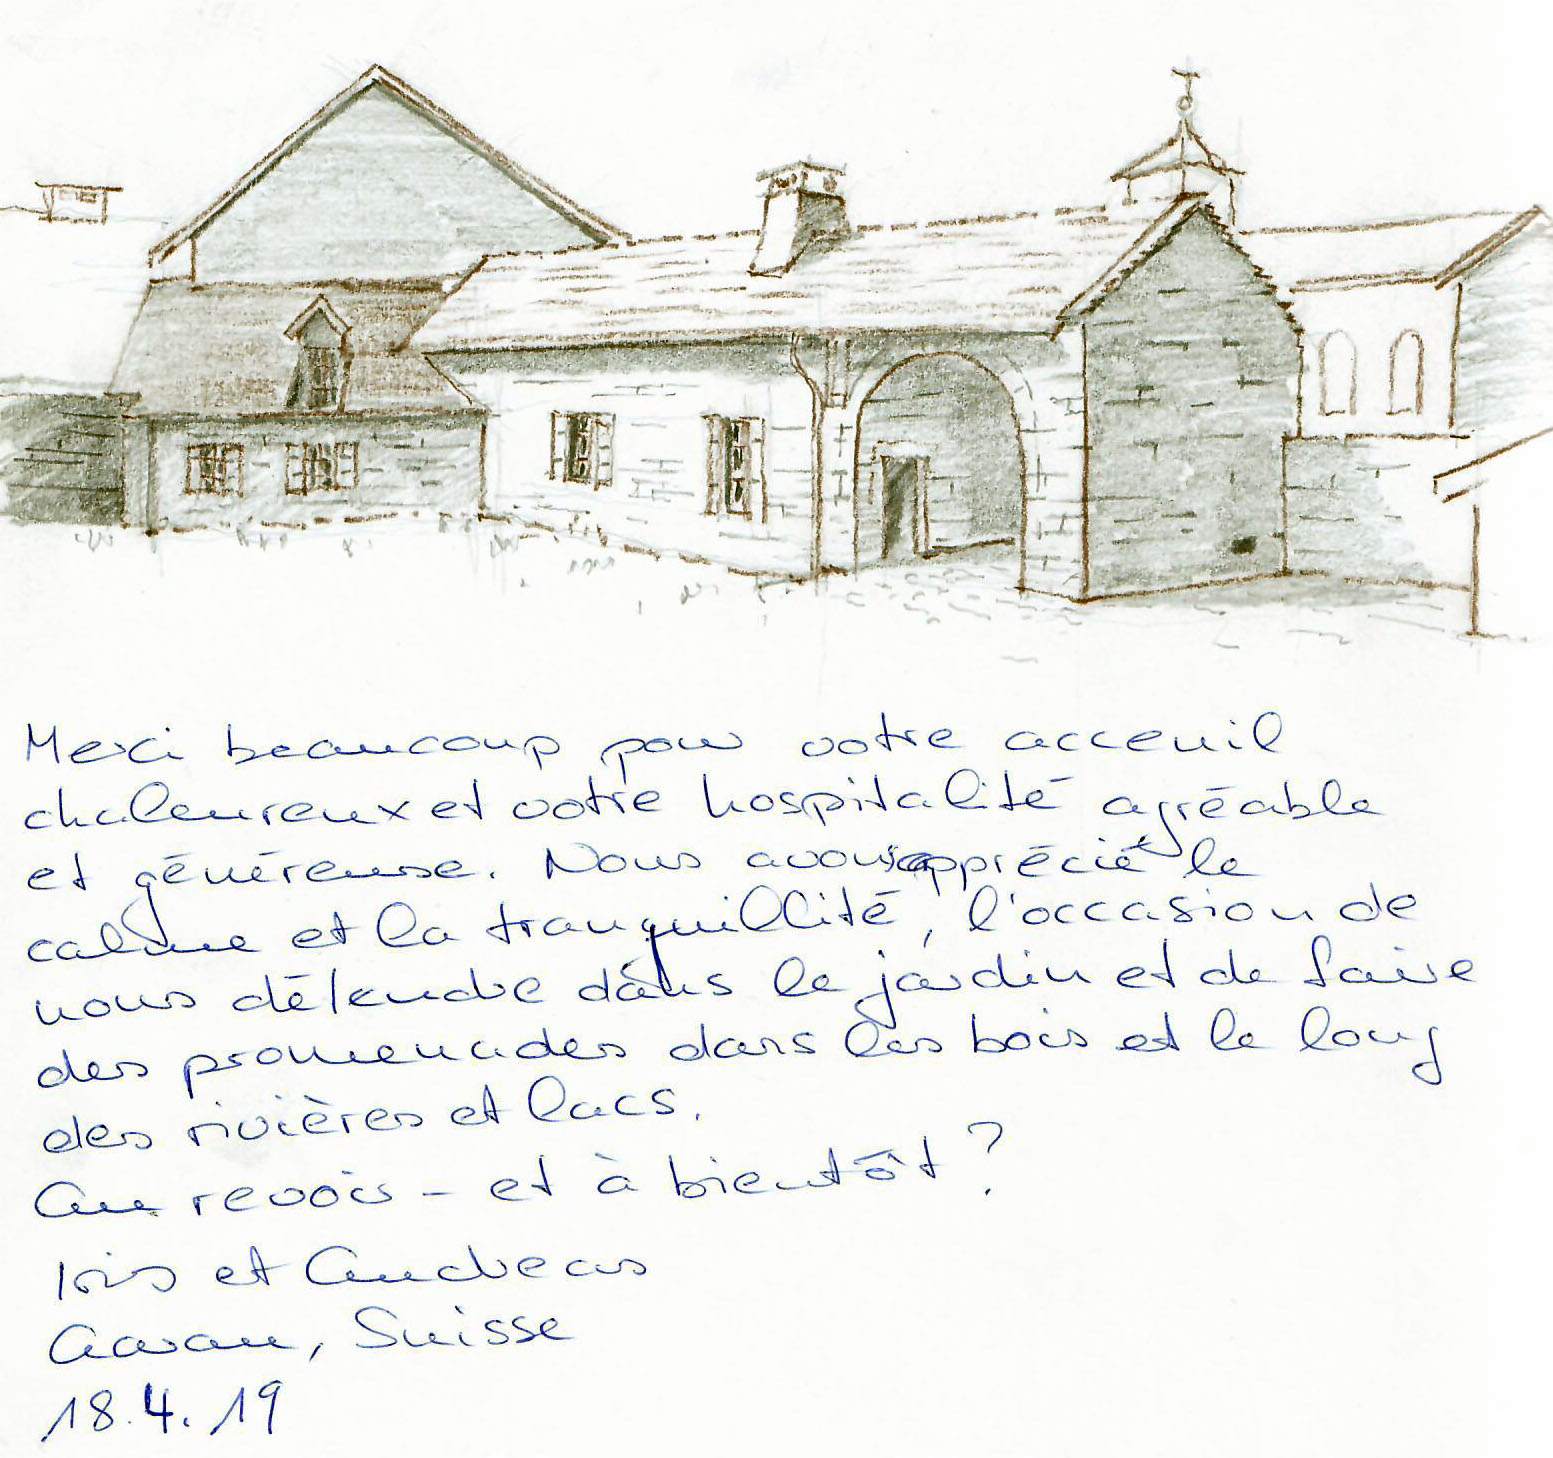 Merci beaucoup pour votre acceuil
chaleureux et votre hospitalité agréable
et généreuse. Nous avons apprécié le
calme et la tranquillité, l'occasion de
nous détendre dans le jardin et de faire
des promenades dans les bois et le long
des rivières et lacs.
Au revoir – et à bientôt ?
Iris et Andreas
Aarau, Suisse
18.4.19